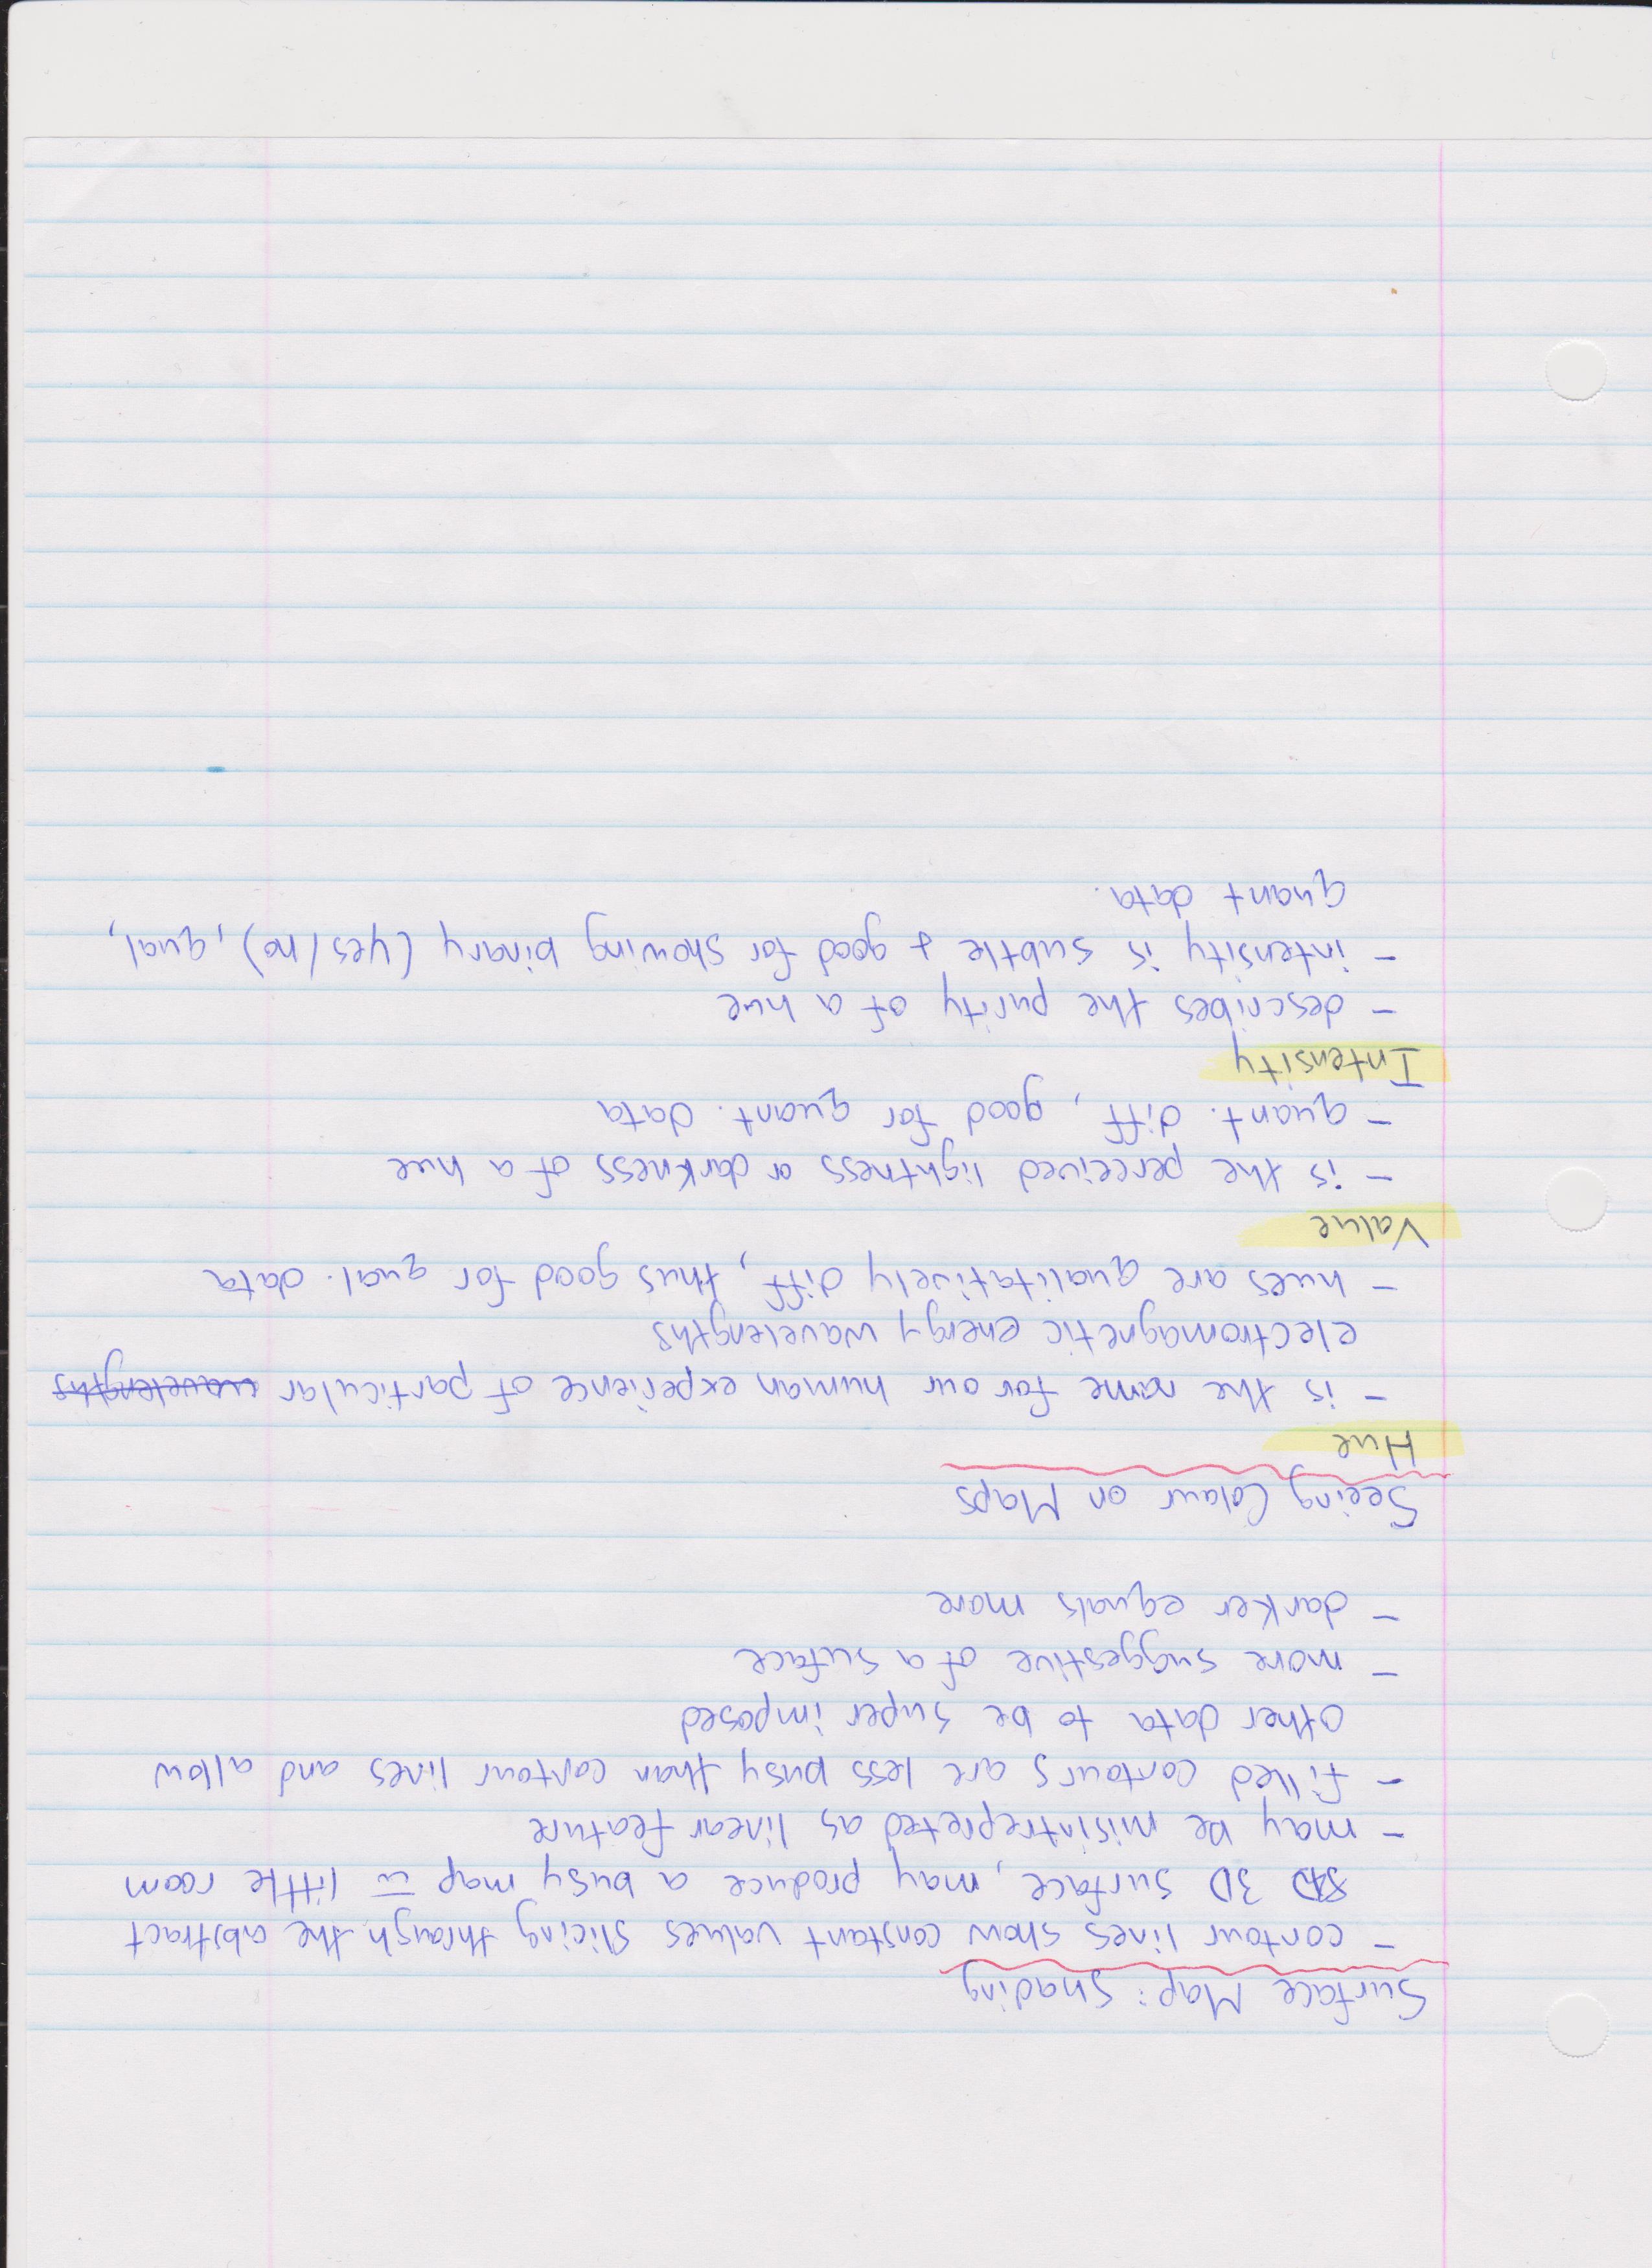 Surface Map: Shading
- contour lines show constant values slicing through the abstract
3D surface, may produce a busy map w̅ little room
- may be misintrepreted as linear feature
- filled contours are less busy than contour lines and allow
other data to be super imposed
- more suggestive of a surface
- darker equals more
Seeing Colour on Maps
Hue
- is the name for our human experience of particular wavelengths
electromagnetic energy wavelengths
- hues are qualitatively diff, thus good for qual. data
Value
- is the perceived lightness or darkness of a hue
- quant. diff, good for quant. data
Intensity
- describes the purity of a hue
- intensity is subtle & good for showing binary (yes/no), qual,
quant data.